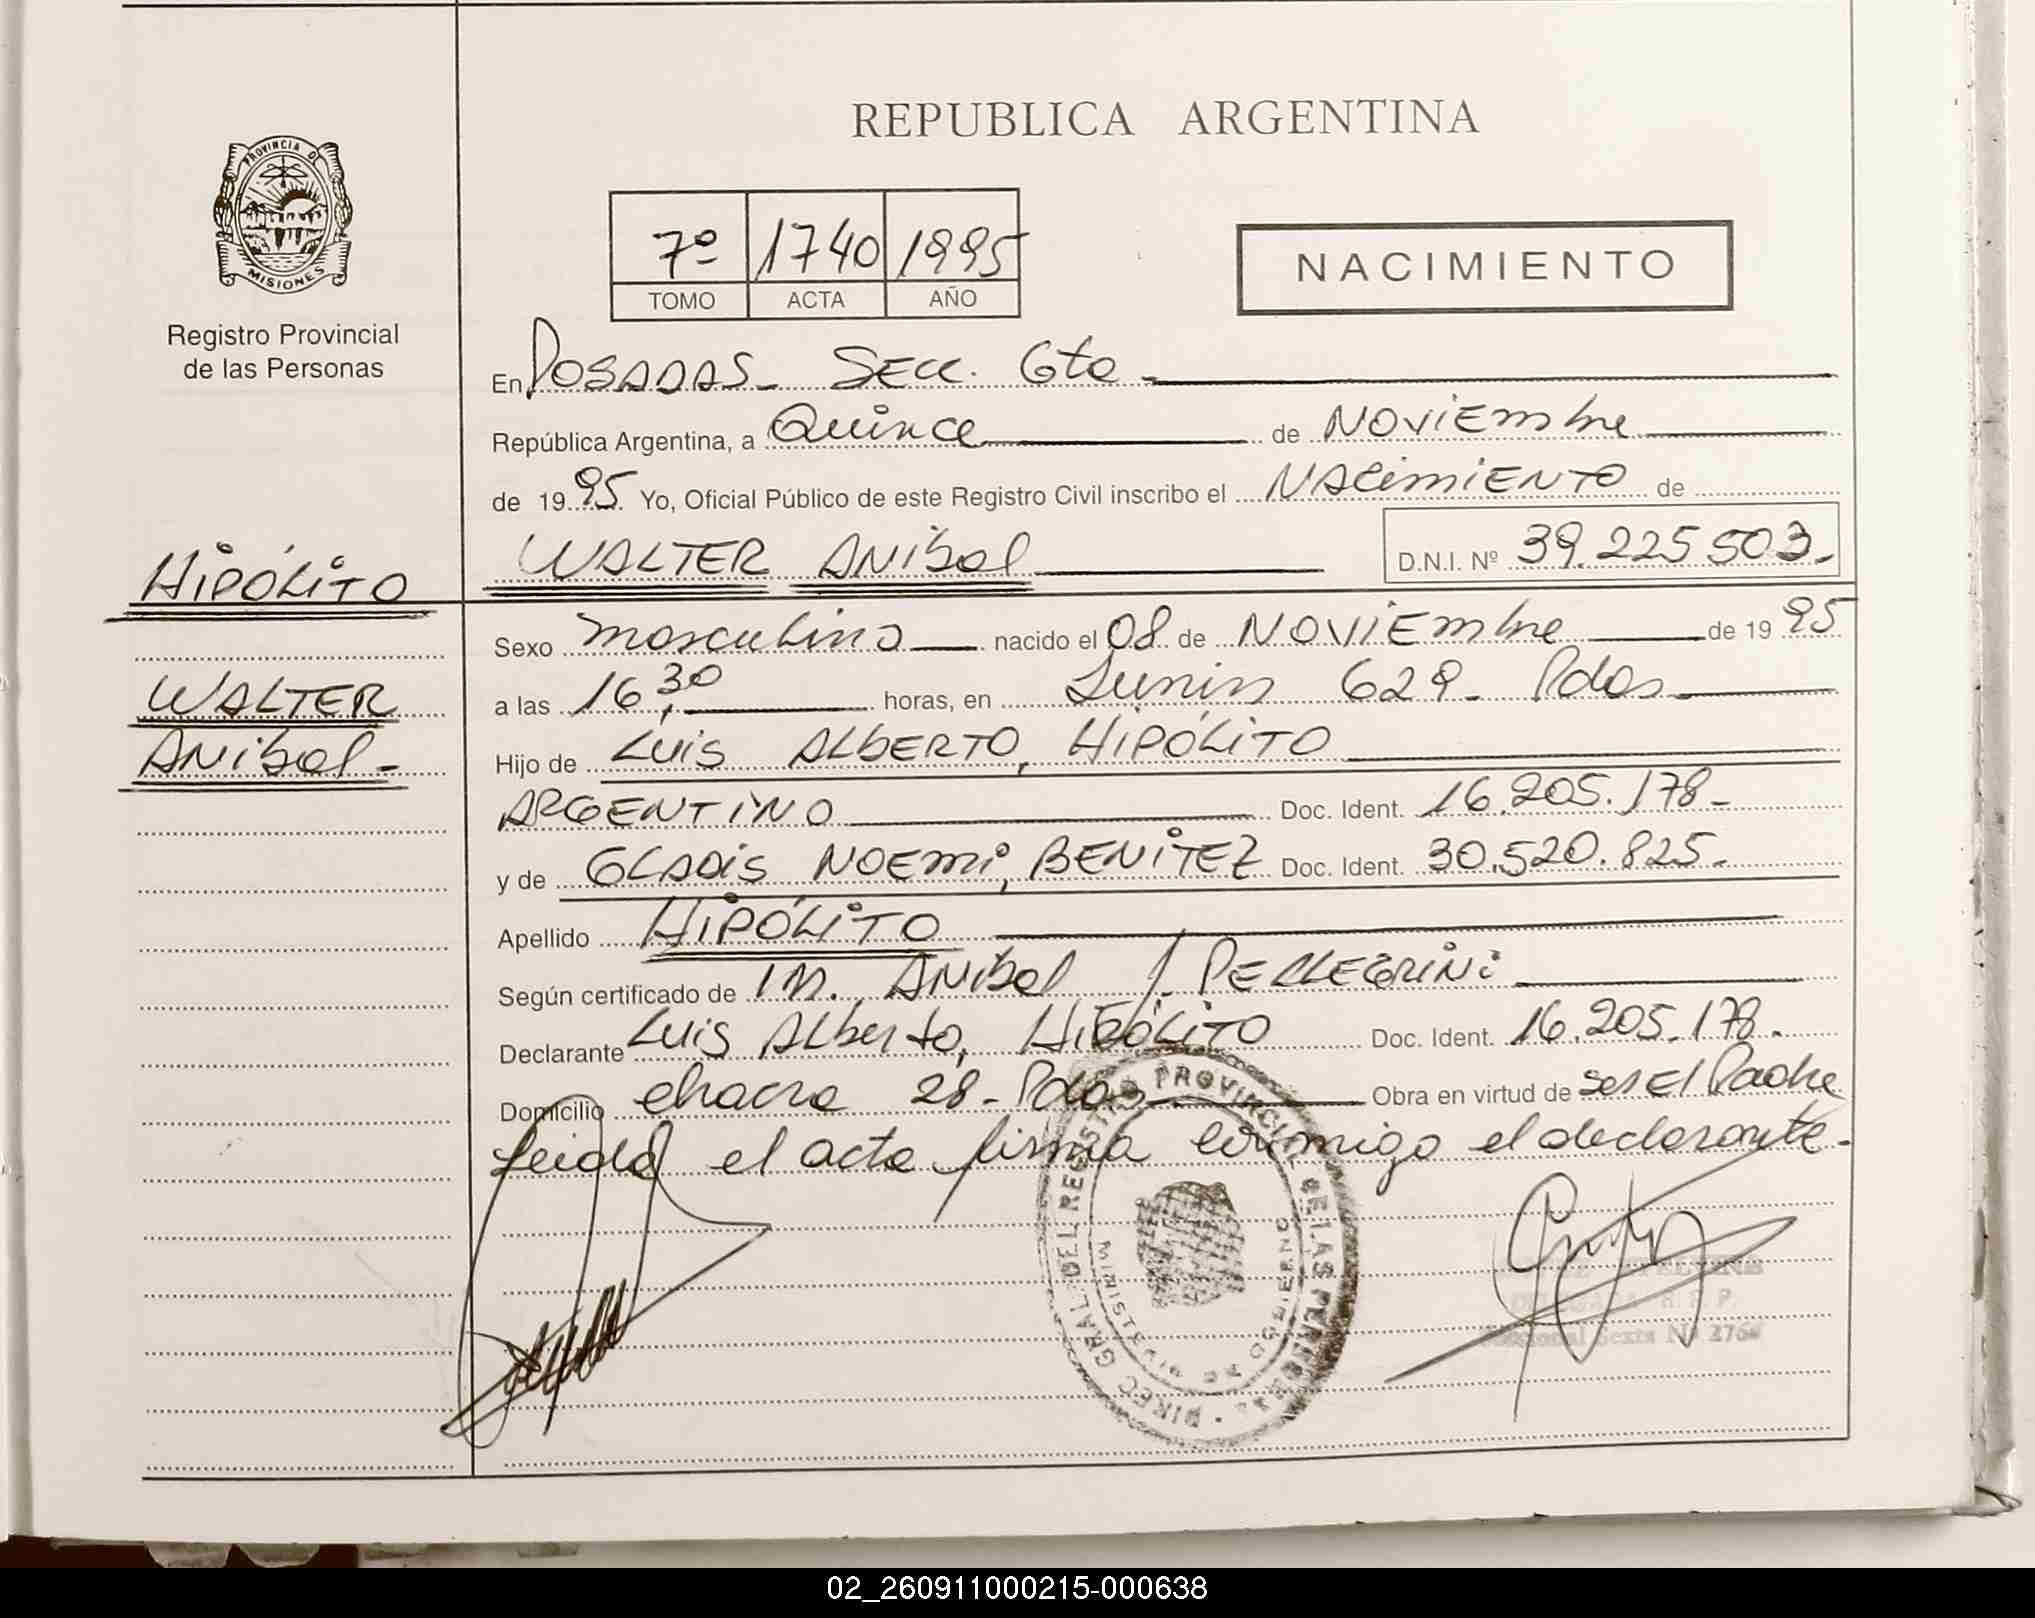 REPUBLICA ARGENTINA
PROVINCIA DE
MISIONES
Registro Provincial
de las Personas
7º 1740 1995
TOMO ACTA AÑO
NACIMIENTO
En POSADAS - SECC. 6ta -
República Argentina, a Quince de NOVIEMbre
de 1995 Yo, Oficial Público de este Registro Civil inscribo el NACIMIENTO de
WALTER ANIbal D.N.I. Nº 39.225.503 -
HIPÓLITO
WALTER
ANIbal -
Sexo masculino nacido el 08 de NOVIEMbre de 1995
a las 16,30 horas, en Junin 629 - Pdas
Hijo de LUIS ALbERTO, HIPÓLITO
ARGENTINO Doc. Ident. 16.205.178 -
y de GLADIS NOEMI, BENITEZ Doc. Ident. 30.520.825 -
Apellido HIPÓLITO
Según certificado de M. ANIbal / PELLEGRINI
Declarante LUIS ALberto, HIPÓLITO Doc. Ident. 16.205.178 -
Domicilio chacra 28 - Pdas Obra en virtud de ser El Padre
Leida el acta firma conmigo el declarante -
DIREC. GRAL. DEL REGISTRO PROVINCIAL DE LAS PERSONAS
MINISTERIO DE GOBIERNO
Sexta Nº 276
02_260911000215-000638